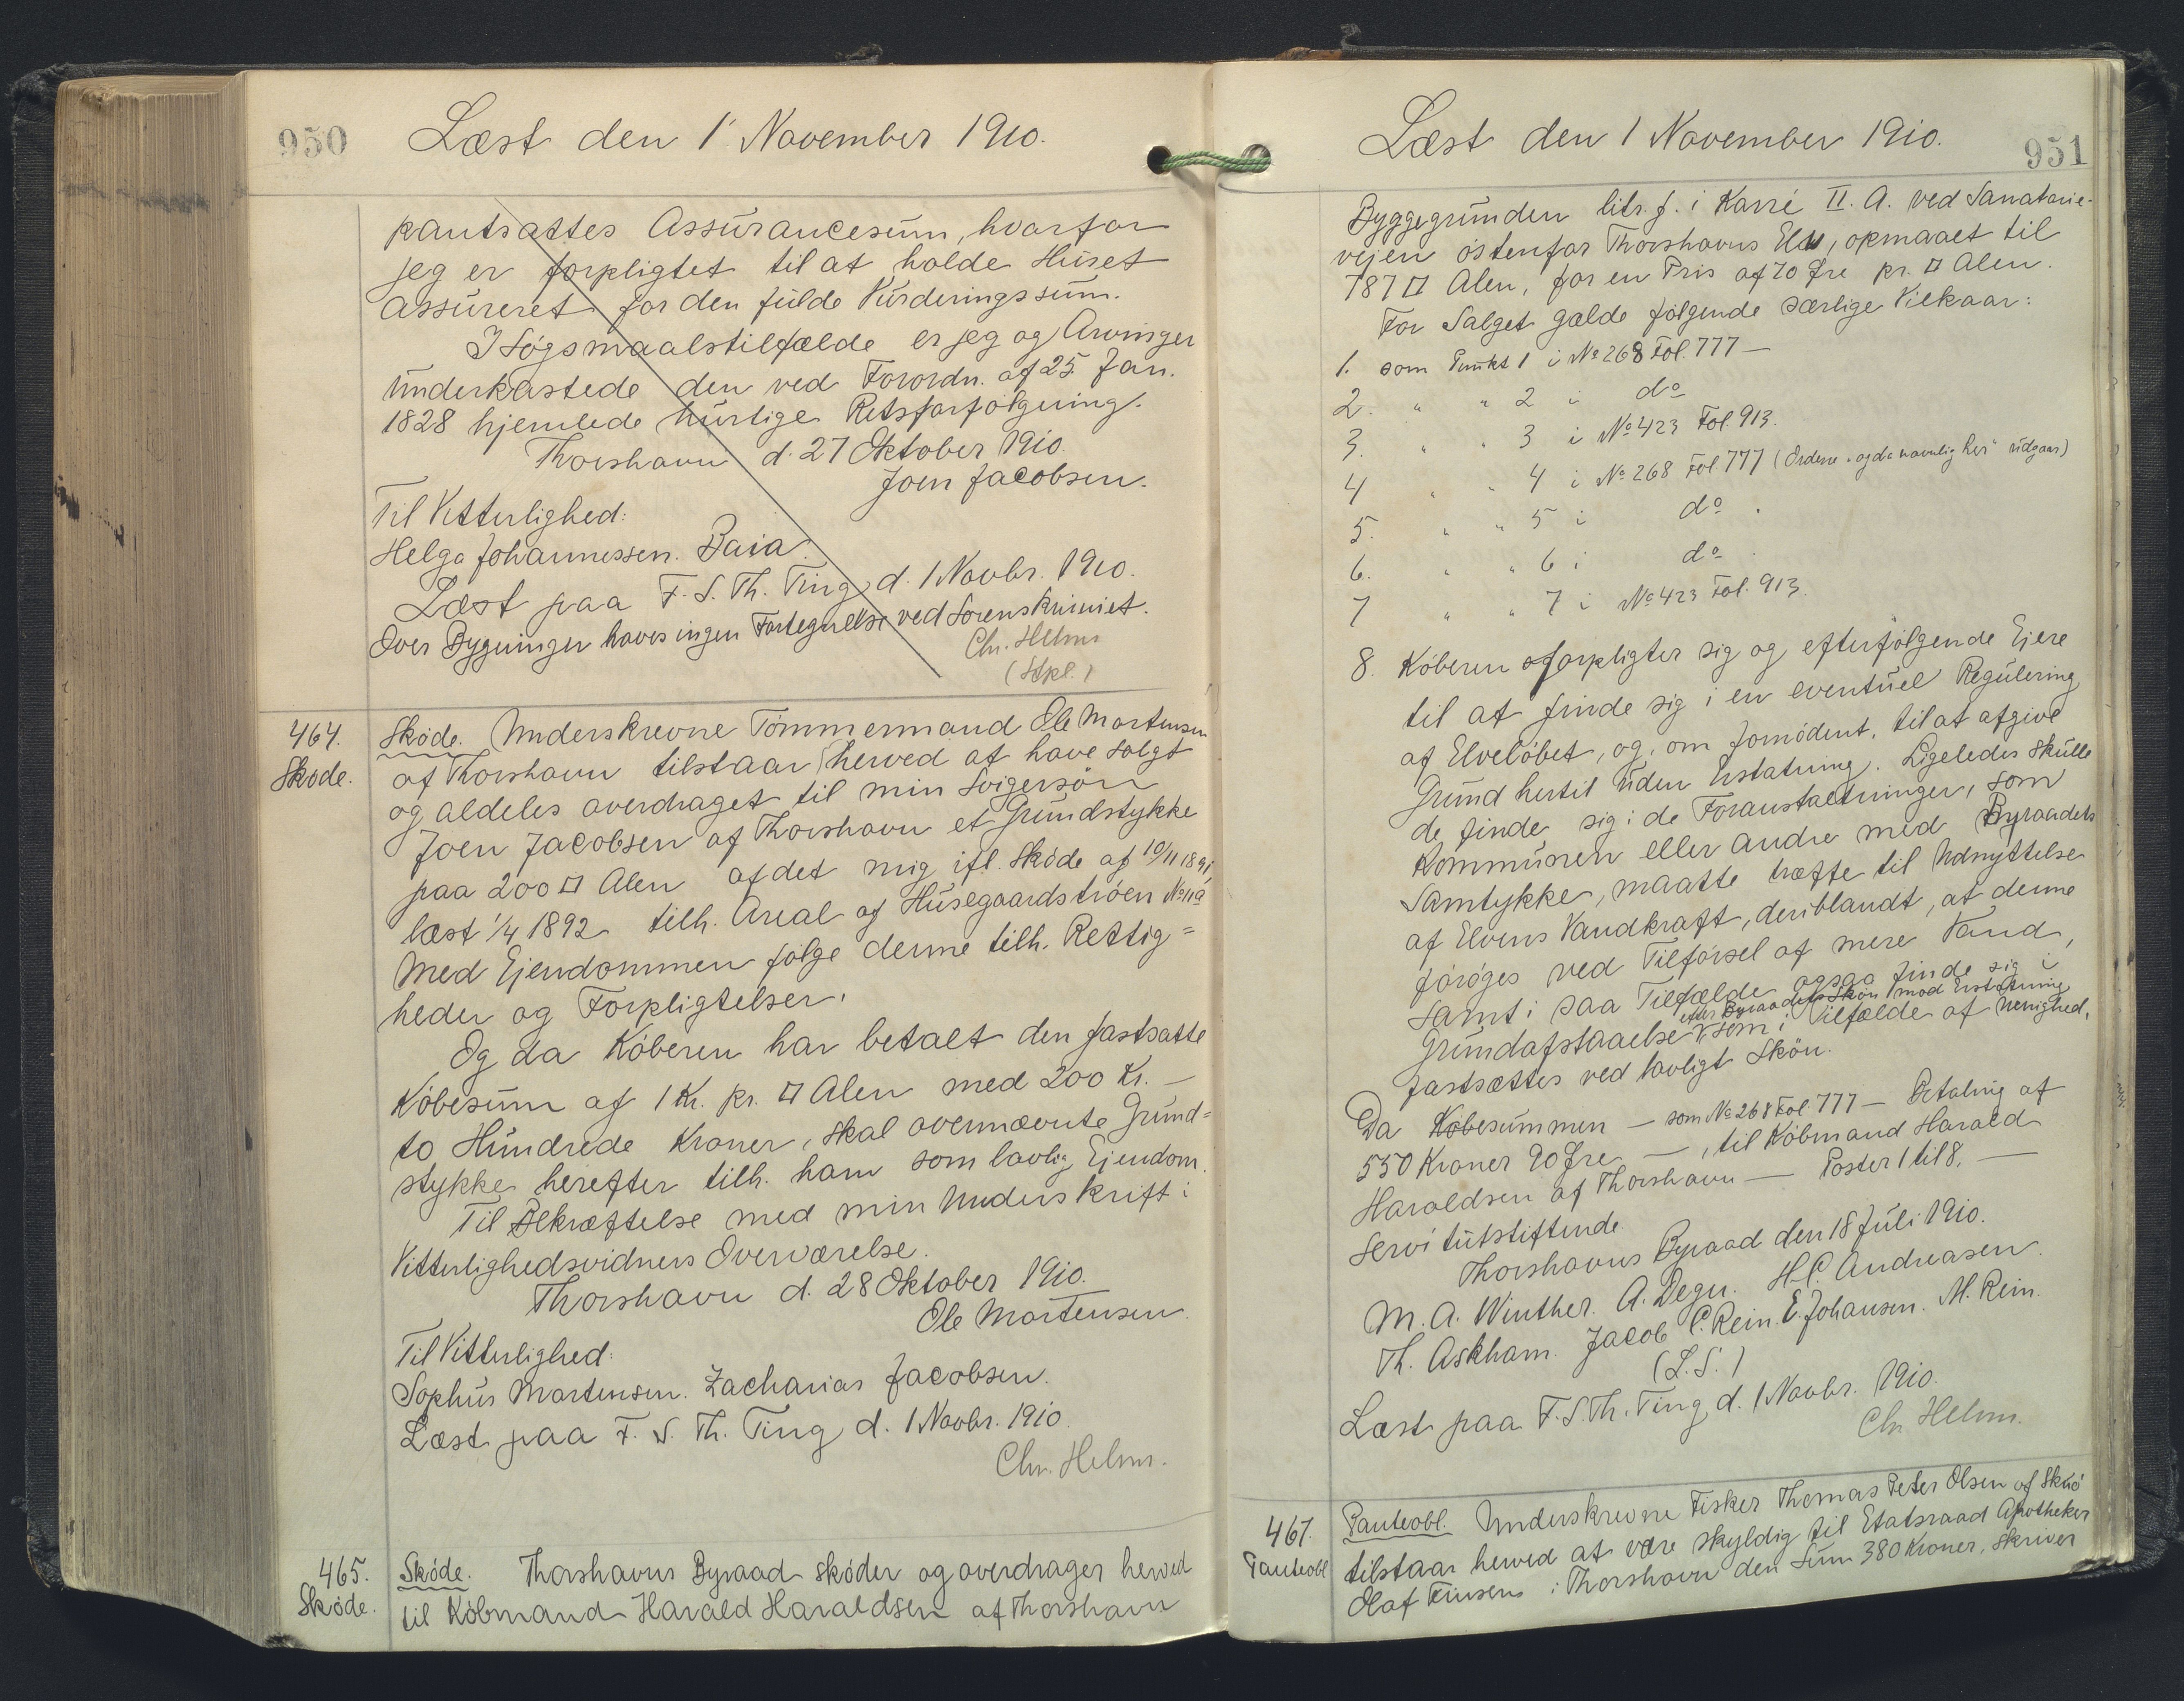 950
Læst den 1' November 1910.
pantsattes Assurancesum, hvorfor
jeg er forpligtet til at holde Huset
assureret for den fulde Vurderingssum.
I Søgsmaalstilfælde er jeg og Arvinger
underkastede den ved Forordn. af 25. Jan.
1828 hjemlede hurtige Retsforfølgning.
Thorshavn d. 27 Oktober 1910.
Joen Jacobsen.
Til Vitterlighed:
Helga Johannessen. Baia.
Læst paa F. S. Th. Ting d. 1 Novbr. 1910.
Over Bygninger haves ingen Fortegnelse ved Sorenskriveriet.
Chr. Helms
(Stpl.)
464.
Skøde.
Skøde. Underskrevne Tømmermand Ole Mortensen
af Thorshavn tilstaar herved at have solgt
og aldeles overdraget til min Svigersøn
Joen Jacobsen af Thorshavn et Grundstykke
paa 200 □ Alen af det mig ifl. Skøde af 10/11 1891,
læst 1/4 1892 tilh. Areal af Husegaardstrøen No 11a
Med Ejendommen følge denne tilh. Rettig=
heder og Forpligtelser.
Og da Køberen har betalt den fastsatte
Købesum af 1 Kr. pr. □ Alen med 200 Kr. —
to Hundrede Kroner, skal ovennævnte Grund=
stykke herefter tilh. ham som lovlig Ejendom.
Til Bekræftelse med min Underskrift i
Vitterlighedsvidners Overværelse.
Thorshavn d. 28 Oktober 1910.
Ole Mortensen.
Til Vitterlighed:
Sophus Mortensen. Zacharias Jacobsen.
Læst paa F. S. Th. Ting d. 1 Novbr. 1910.
Chr. Helms.
465.
Skøde.
Skøde. Thorshavns Byraad skøder og overdrager herved
til Købmand Harald Haraldsen af Thorshavn
Læst den 1 November 1910.
951
Byggegrunden litr. f. i Karré II. A. ved Sanatorie-
vejen østenfor Thorshavns Elv, opmaalt til
787 □ Alen, for en Pris af 70 Øre pr. □ Alen.
For Salget gælde følgende særlige Vilkaar:
1. som Punkt 1 i No 268 Fol. 777 —
2. " " 2 i do
3. " " 3 i No 423 Fol. 913.
4 " " 4 i No 268 Fol 777 (Ordene "og da navnlig her" udgaar)
5. " " 5 i do .
6. " " 6 i do .
7 " " 7 i No 423 Fol. 913.
8. Køberen forpligter sig og efterfølgende Ejere
til at finde sig i en eventuel Regulering
af Elveløbet, og, om fornødent, til at afgive
Grund hertil uden Erstatning. Ligeledes skulle
de finde sig i de Foranstaltninger, som
Kommunen eller andre med Byraadets
Samtykke, maatte træffe til Udnyttelse
af Elvens Vandkraft, deriblandt, at denne
forøges ved Tilførsel af mere Vand,
samt i saa Tilfælde ogsaa finde sig i
efter Byraadets Skøn mod Erstatning
Grundafstaaelse, som i Tilfælde af Uenighed,
fastsættes ved lovligt Skøn.
Da Købesummen — som No 268 Fol. 777 — Betaling af
550 Kroner 90 Øre — , til Købmand Harald
Haraldsen af Thorshavn — Poster 1 til 8. —
servitutstiftende.
Thorshavns Byraad den 18 Juli 1910.
M. A. Winther. A. Degn. H. C. Andreasen.
Th. Askham. Jacob C. Rein. E. Johansen. M. Rein.
(L.S.)
Læst paa F. S. Th. Ting d. 1 Novbr. 1910.
Chr. Helms.
467.
Panteobl
Panteobl. Underskrevne Fisker Thomas Peter Olsen af Skuø
tilstaar herved at være skyldig til Etatsraad Apotheker
Olaf Finsen i Thorshavn den Sum 380 Kroner, skriver